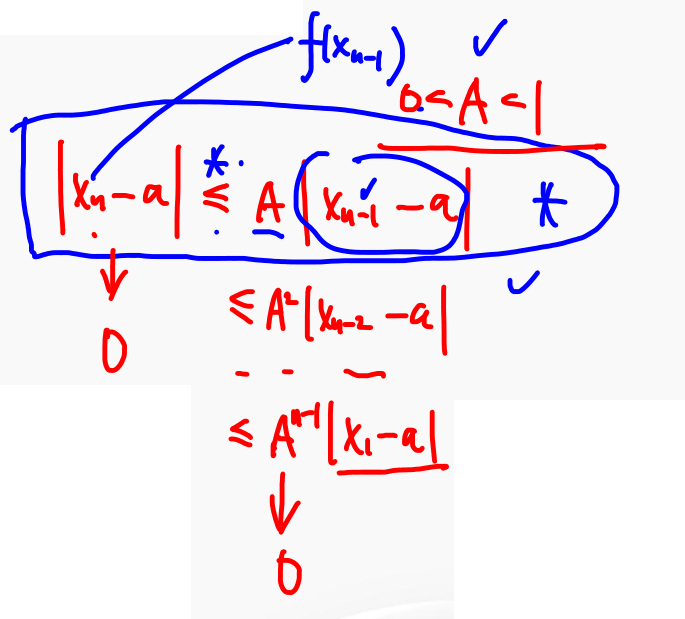 f(xₙ₋₁) ✓
0<A<1
|xₙ-a| ≤ A|xₙ₋₁-a| *
*
✓
↓ ≤A²|xₙ₋₂-a|
0
≤Aⁿ⁻¹|x₁-a|
↓
0